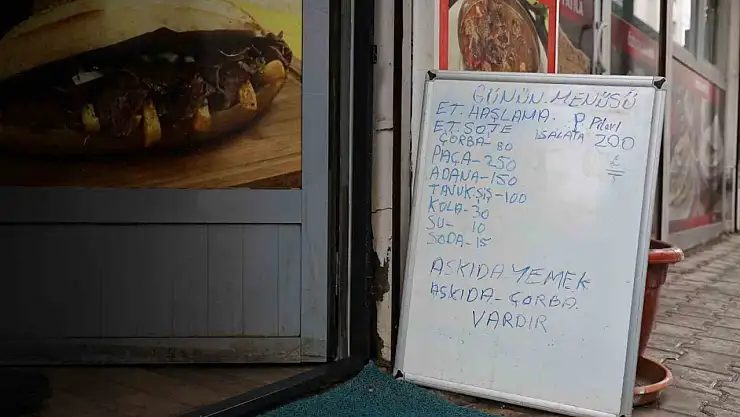 GÜNÜN MENÜSÜ
ET. HAŞLAMA. P Pilavı
ET. SOTE SALATA 200
ÇORBA-80
PAÇA-250
ADANA-150
TAVUK ŞİŞ-100
KOLA-30
SU- 10
SODA-15
ASKIDA-YEMEK
ASKIDA-ÇORBA
VARDIR